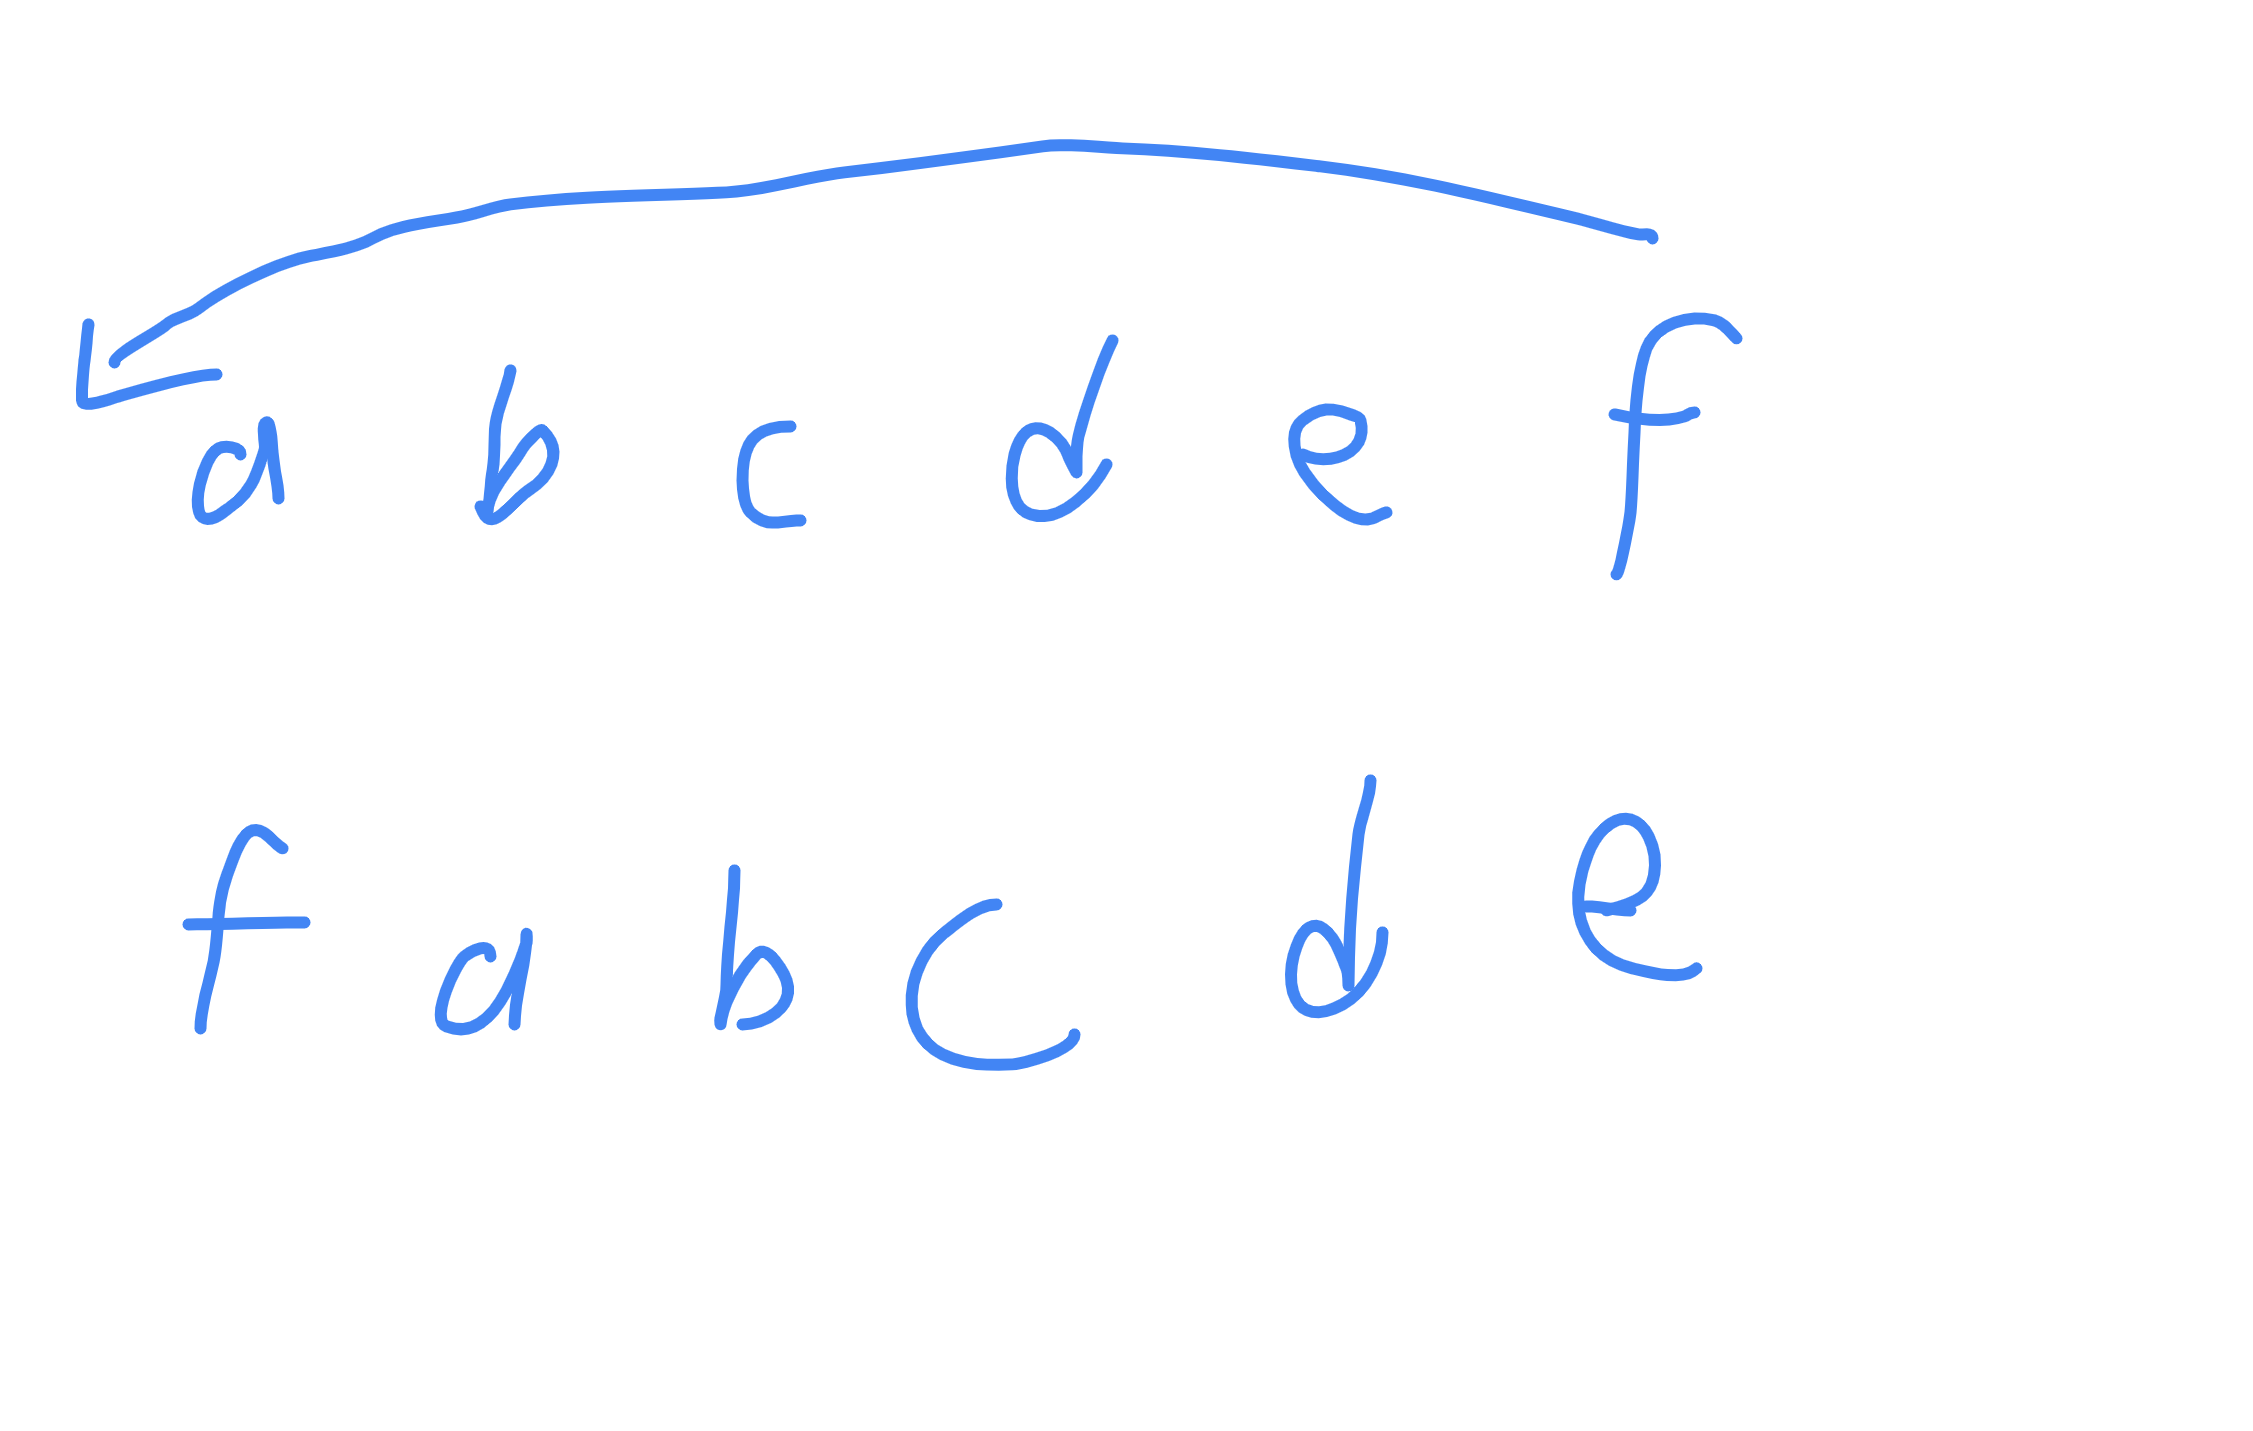 a b c d e f
f a b c d e